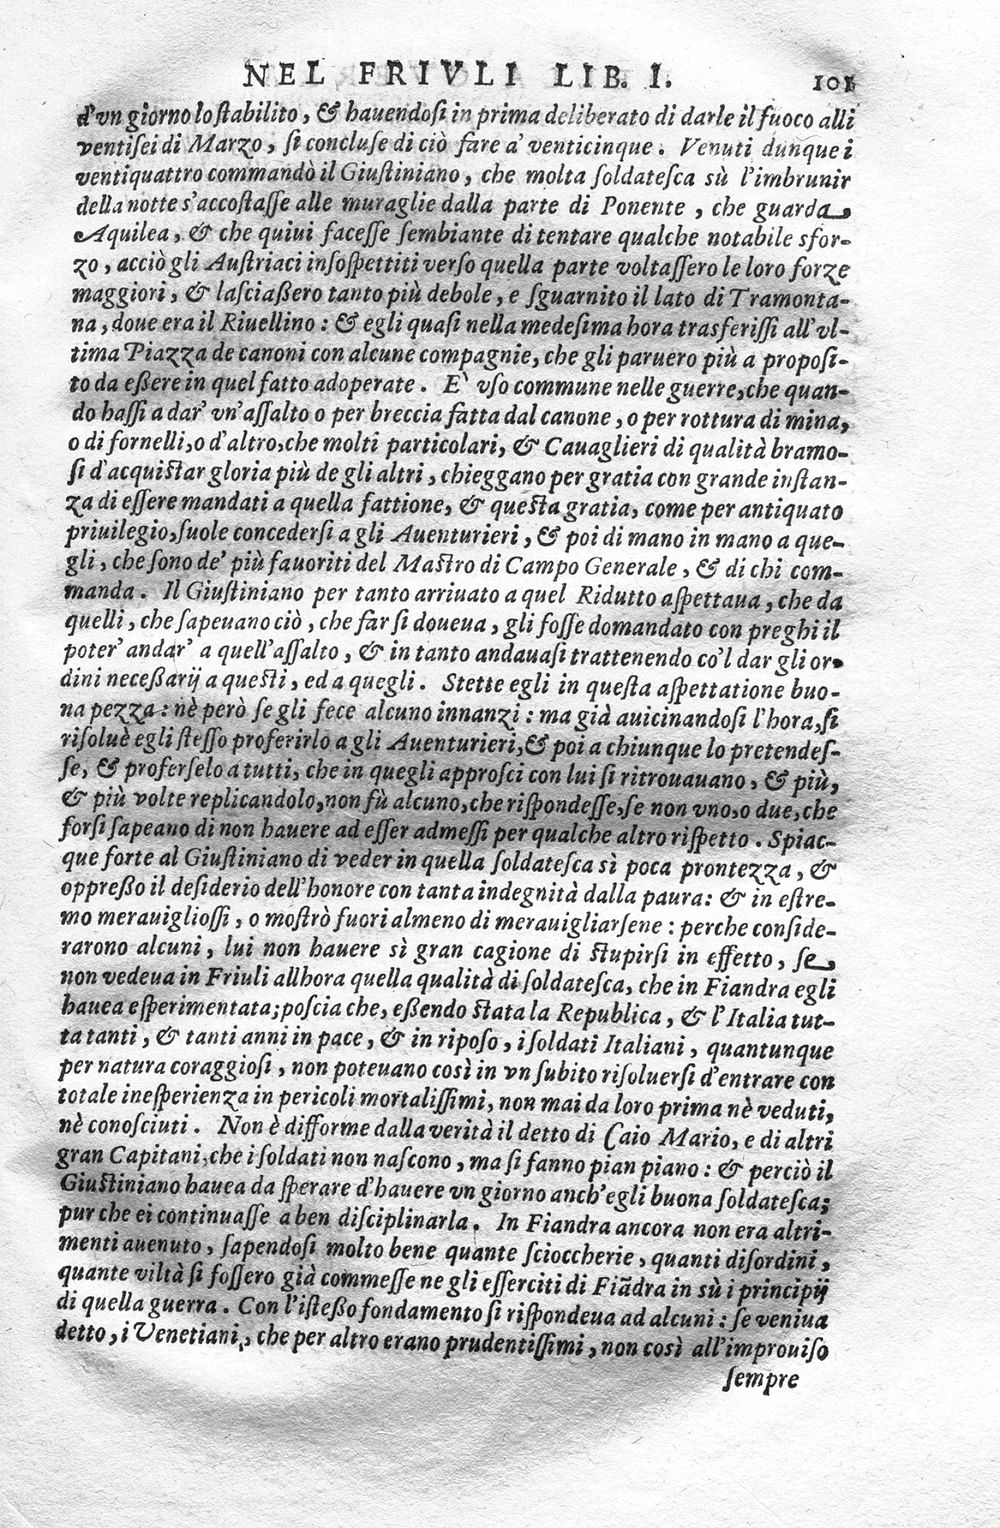 NEL FRIVLI LIB. I. 101
d'vn giorno lo stabilito, & hauendosi in prima deliberato di darle il fuoco alli
ventisei di Marzo, si concluse di ciò fare a' venticinque. Venuti dunque i
ventiquattro commandò il Giustiniano, che molta soldatesca sù l'imbrunir
della notte s'accostasse alle muraglie dalla parte di Ponente, che guarda
Aquilea, & che quiui facesse sembiante di tentare qualche notabile sfor-
zo, acciò gli Austriaci insospettiti verso quella parte voltassero le loro forze
maggiori, & lasciaßero tanto più debole, e sguarnito il lato di Tramonta-
na, doue era il Riuellino: & egli quasi nella medesima hora trasferissi all'vl-
tima Piazza de canoni con alcune compagnie, che gli paruero più a proposi-
to da eßere in quel fatto adoperate. E` vso commune nelle guerre, che quan-
do hassi a dar' vn'assalto o per breccia fatta dal canone, o per rottura di mina,
o di fornelli, o d'altro, che molti particolari, & Cauaglieri di qualità bramo-
si d'acquistar gloria più de gli altri, chieggano per gratia con grande instan-
za di essere mandati a quella fattione, & questa gratia, come per antiquato
priuilegio, suole concedersi a gli Auenturieri, & poi di mano in mano a que-
gli, che sono de' più fauoriti del Mastro di Campo Generale, & di chi com-
manda. Il Giustiniano per tanto arriuato a quel Ridutto aspettaua, che da
quelli, che sapeuano ciò, che far si doueua, gli fosse domandato con preghi il
poter' andar' a quell'assalto, & in tanto andauasi trattenendo co'l dar gli or-
dini neceßarij a questi, ed a quegli. Stette egli in questa aspettatione buo-
na pezza: nè però se gli fece alcuno innanzi: ma già auicinandosi l'hora, si
risoluè egli stesso proferirlo a gli Auenturieri, & poi a chiunque lo pretendes-
se, & proferselo a tutti, che in quegli approsci con lui si ritrouauano, & più,
& più volte replicandolo, non fù alcuno, che rispondesse, se non vno, o due, che
forsi sapeano di non hauere ad esser admessi per qualche altro rispetto. Spiac-
que forte al Giustiniano di veder in quella soldatesca sì poca prontezza, &
oppreßo il desiderio dell'honore con tanta indegnità dalla paura: & in estre-
mo merauigliossi, o mostrò fuori almeno di merauigliarsene: perche conside-
rarono alcuni, lui non hauere sì gran cagione di stupirsi in effetto, se
non vedeua in Friuli allhora quella qualità di soldatesca, che in Fiandra egli
hauea esperimentata; poscia che, eßendo stata la Republica, & l'Italia tut-
ta tanti, & tanti anni in pace, & in riposo, i soldati Italiani, quantunque
per natura coraggiosi, non poteuano così in vn subito risoluersi d'entrare con
totale inesperienza in pericoli mortalissimi, non mai da loro prima nè veduti,
nè conosciuti. Non è difforme dalla verità il detto di Caio Mario, e di altri
gran Capitani, che i soldati non nascono, ma si fanno pian piano: & perciò il
Giustiniano hauea da sperare d'hauere vn giorno anch'egli buona soldatesca;
pur che ei continuasse a ben disciplinarla. In Fiandra ancora non era altri-
menti auenuto, sapendosi molto bene quante scioccherie, quanti disordini,
quante viltà si fossero già commesse ne gli esserciti di Fiãdra in sù i principij
di quella guerra. Con l'isteßo fondamento si rispondeua ad alcuni: se veniua
detto, i Venetiani, che per altro erano prudentissimi, non così all'improuiso
sempre